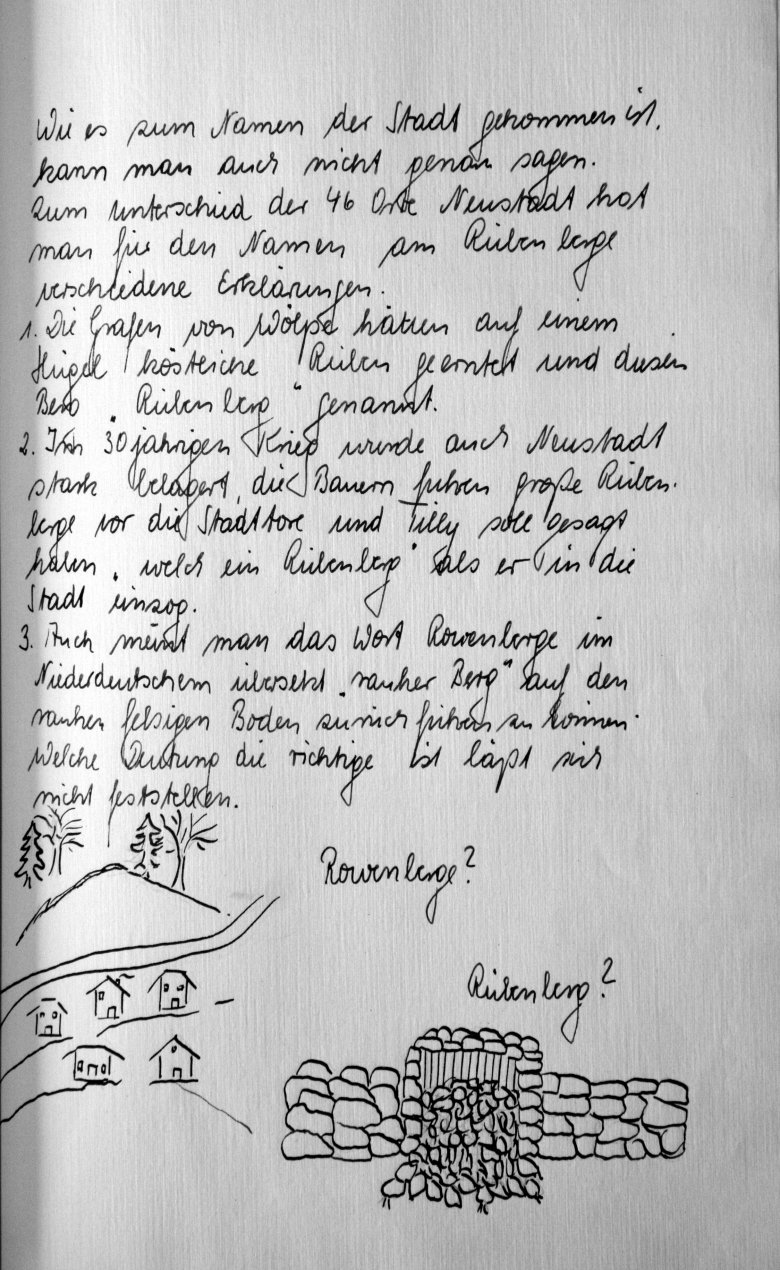 Wie es zum Namen der Stadt gekommen ist,
kann man auch nicht genau sagen.
Zum unterschied der 46 Orte Neustadt hat
man für den Namen am Rübenberge
verschiedene Erklärungen.
1. Die Grafen von Wölpe hätten auf einem
Hügel köstliche Rüben geerntet und diesen
Berg „Rübenberg" genannt.
2. Im 30jährigen Krieg wurde auch Neustadt
stark belagert, die Bauern fuhren große Rüben-
berge vor die Stadttore und Tilly soll gesagt
haben „welch ein Rübenberg" als er in die
Stadt einzog.
3. Auch meint man das Wort Rowenberge im
Niederdeutschem übersetzt „rauher Berg" auf den
rauhen felsigen Boden zurückführen zu können.
Welche Deutung die richtige ist läßt sich
nicht feststellen.
Rowenberge?
Rübenberg?